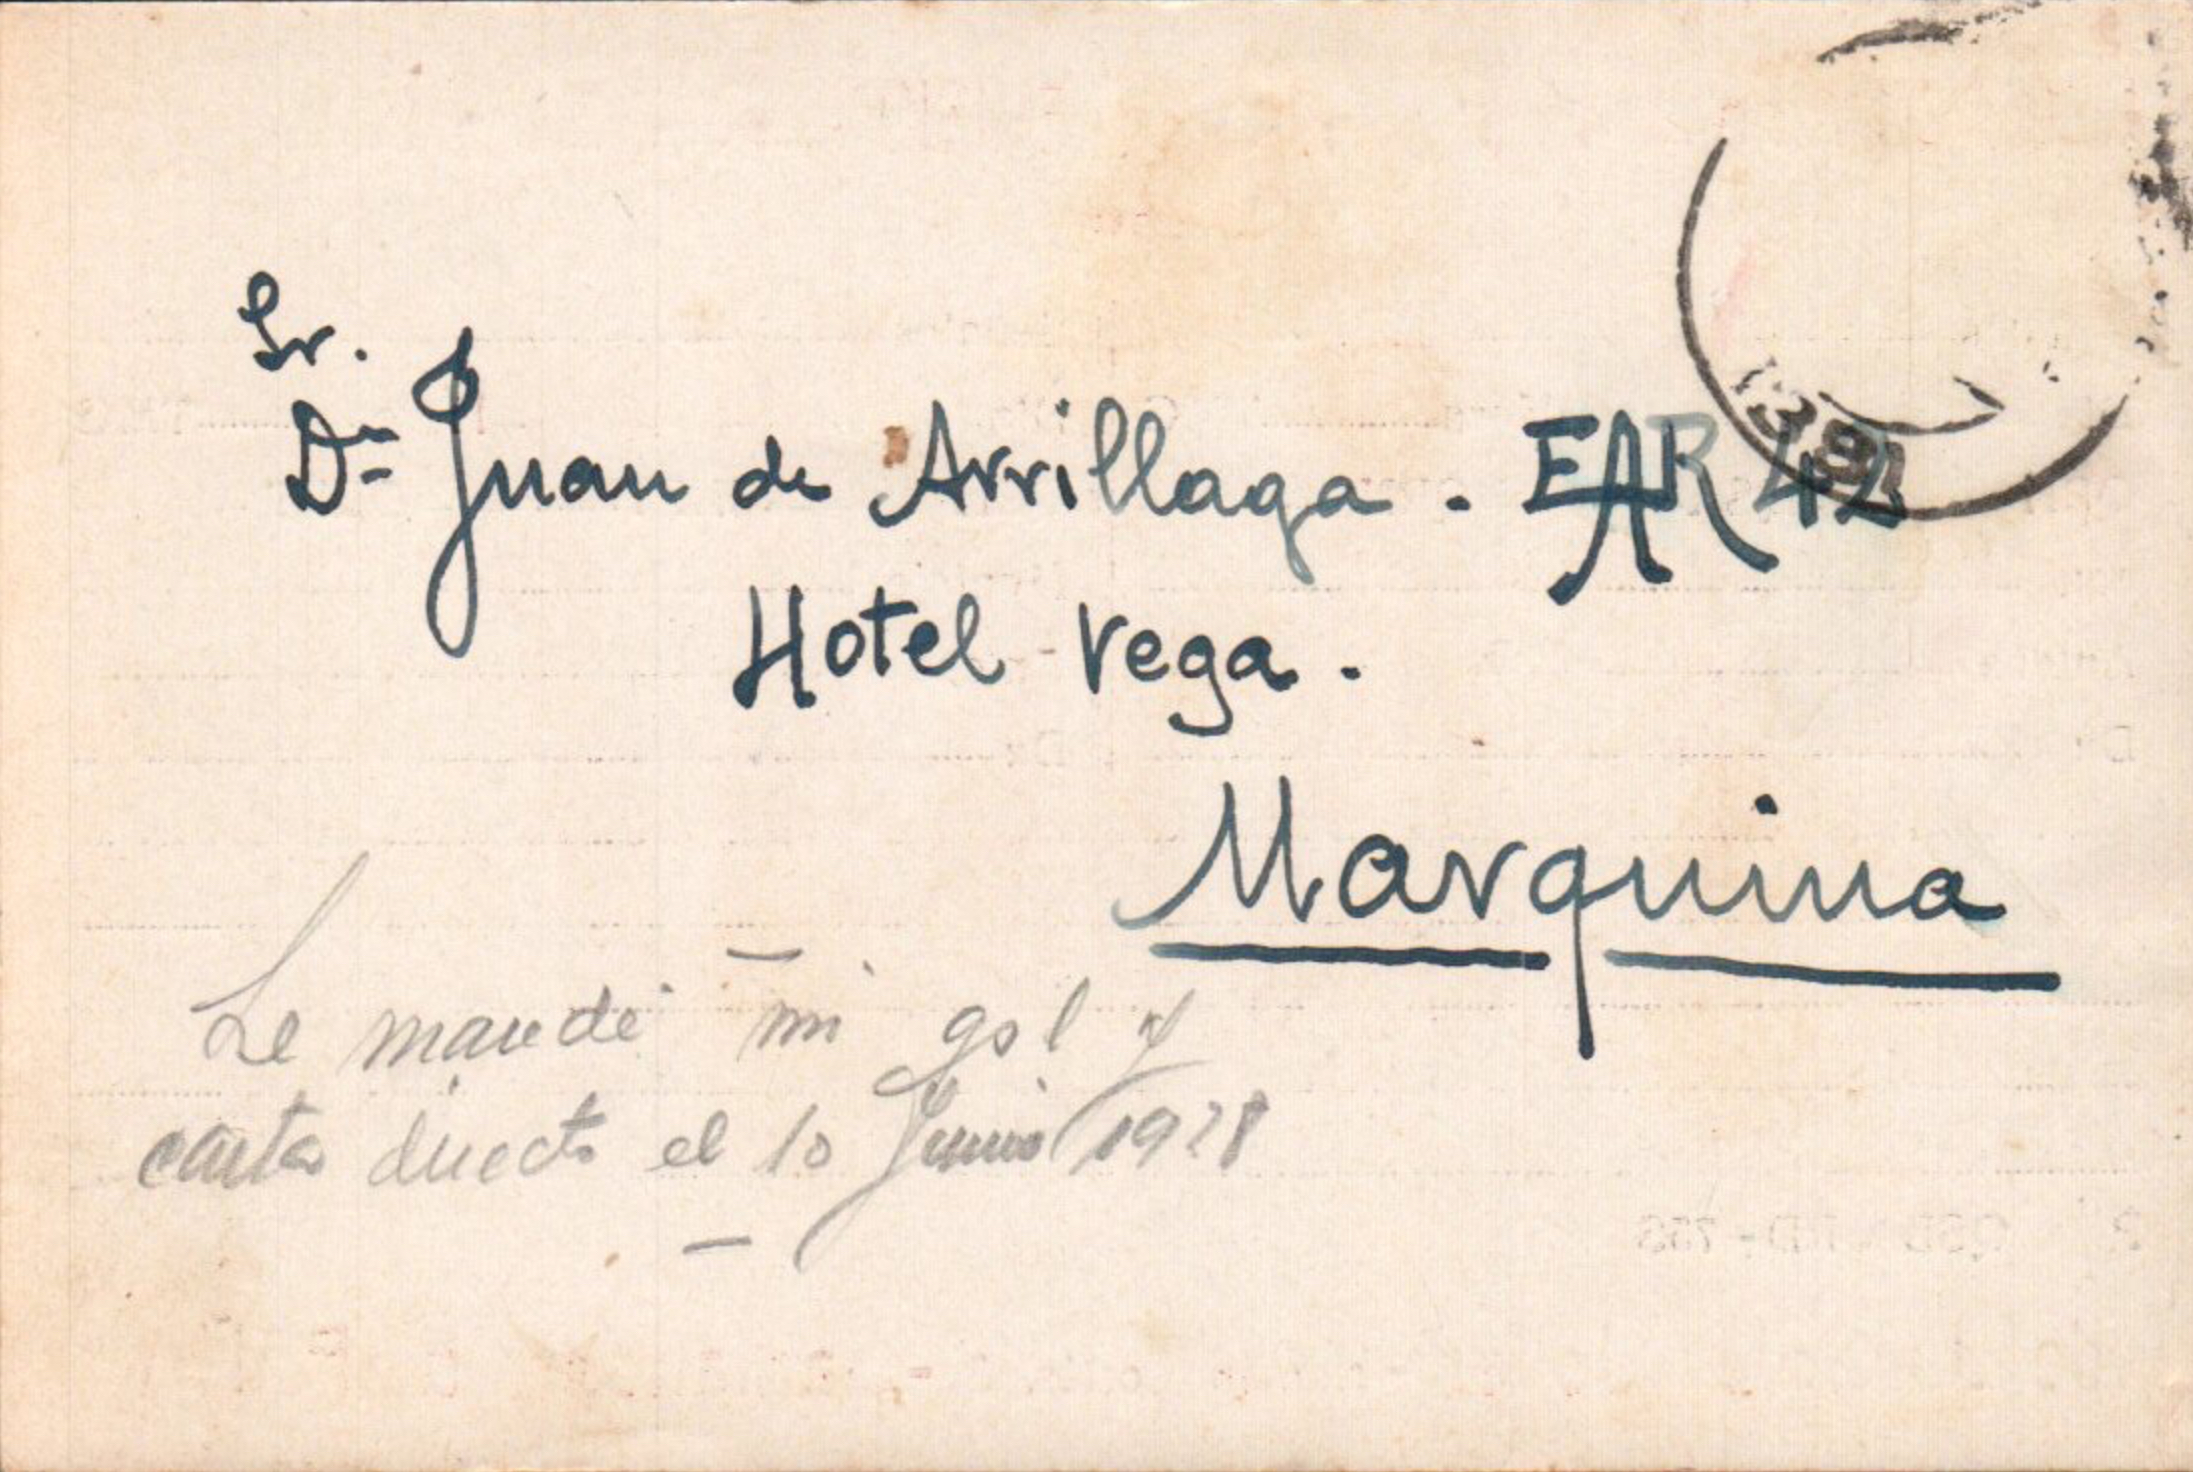 Sr.
Dn Juan de Arrillaga. EAR 42
Hotel Vega.
Marquina
Le mandé mi qsl y
carta directa el 10 Junio 1928